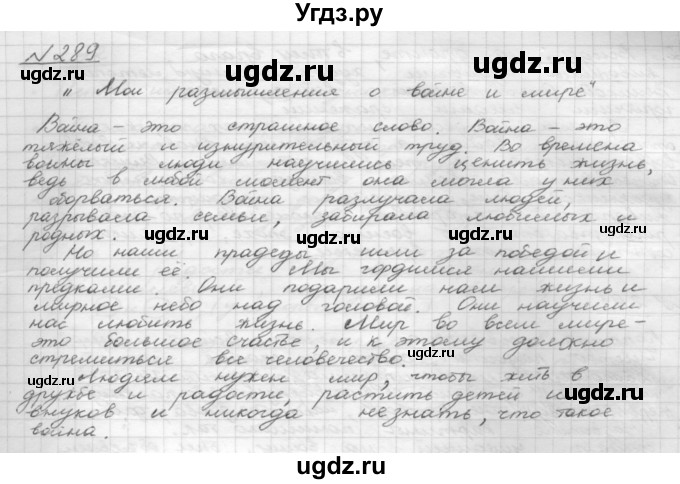 Угдз.ру
№289
"Мои размышления о войне и мире"
Война - это страшное слово. Война - это
тяжёлый и изнурительный труд. Во времена
войны люди научились ценить жизнь,
ведь в любой момент она могла у них
оборваться. Война разлучала людей,
разрывала семьи, забирала любимых и
родных.
Но наши прадеды шли за победой и
получили её. Мы гордимся нашими
предками. Они подарили нам жизнь и
мирное небо над головой. Они научили
нас любить жизнь. Мир во всем мире-
это большое счастье, и к этому должно
стремиться все человечество.
Людям нужен мир, чтобы жить в
дружбе и радости, растить детей и
внуков и никогда не знать, что такое
война.
ugdz.ru
ugdz.ru
ugdz.ru
ugdz.ru
ugdz.ru
ugdz.ru
ugdz.ru
ugdz.ru
ugdz.ru
ugdz.ru
ugdz.ru
ugdz.ru
ugdz.ru